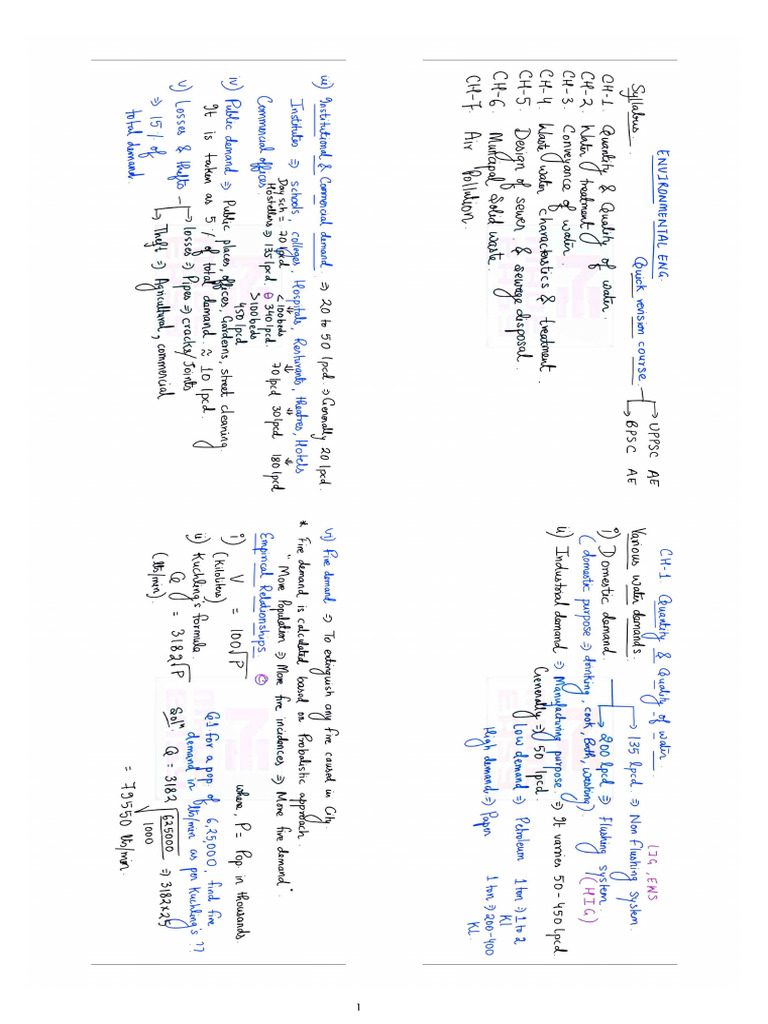 ENVIRONMENTAL ENG.
Quick revision course. → UPPSC AE
→ BPSC AE
Syllabus.
CH-1. Quantity & Quality of water.
CH-2. Water treatment.
CH-3. Conveyance of water.
CH-4. Wast water charactestics & treatment.
CH-5. Design of sewer & sewege disposal.
CH-6. Muncipal Solid waste.
CH-7. Air Pollution.
CH-1 Quantity & Quality of water.
Various water demands.
LIG, EWS
i) Domestic demand. → 135 lpcd. ⇒ Non flushing system.
→ 200 lpcd ⇒ Flushing system
(HIG)
(domestic purpose ⇒ drinking, cook, Bath, washing)
ii) Industrial demand ⇒ Manufacturing purpose ⇒ It varries 50-450 lpcd
Generally ⇒ 50 lpcd.
Low demand ⇒ Petroleum 1 ton ⇒ 1 to 2 Kl
High demand ⇒ Paper 1 ton ⇒ 200-400 Kl.
iii) Institutional & Commercial demand ⇒ 20 to 50 lpcd. ⇒ Generally 20 lpcd.
Institutes ⇒ schools, colleges, Hospitals, Resturants, theatres, Hotels
Day sch = 70 lpcd <100 beds 70 lpcd 30 lpcd 180 lpcd
Commercial offices. Hostellers ⇒ 135 lpcd. 340 lpcd.
>100 beds
450 lpcd
iv) Public demand ⇒ Public places, offices, Gardens, street cleaning.
It is taken as 5% of total demand. ≈ 10 lpcd.
v) Losses & thefts → losses ⇒ Pipes ⇒ cracks/Joints
⇒ 15% of → Theft ⇒ Agricultural, commercial
total demand.
vi) Fire demand ⇒ To extinguish any fire caused in City.
* Fire demand is calculated based on Probalistic approach.
"More Population ⇒ More fire incidences ⇒ More fire demand".
Empirical Relationships.
i) V = 100√P where, P = Pop in thousands
(kiloliters)
ii) Kuchling's formula. Q1 for a pop of 6,25,000, find fire
demand in lb/min as per Kuchling's ??
Q = 3182√P
(lb/min).
Solⁿ. Q = 3182 √(625000/1000) ⇒ 3182×25
= 79550 lb/min.
1